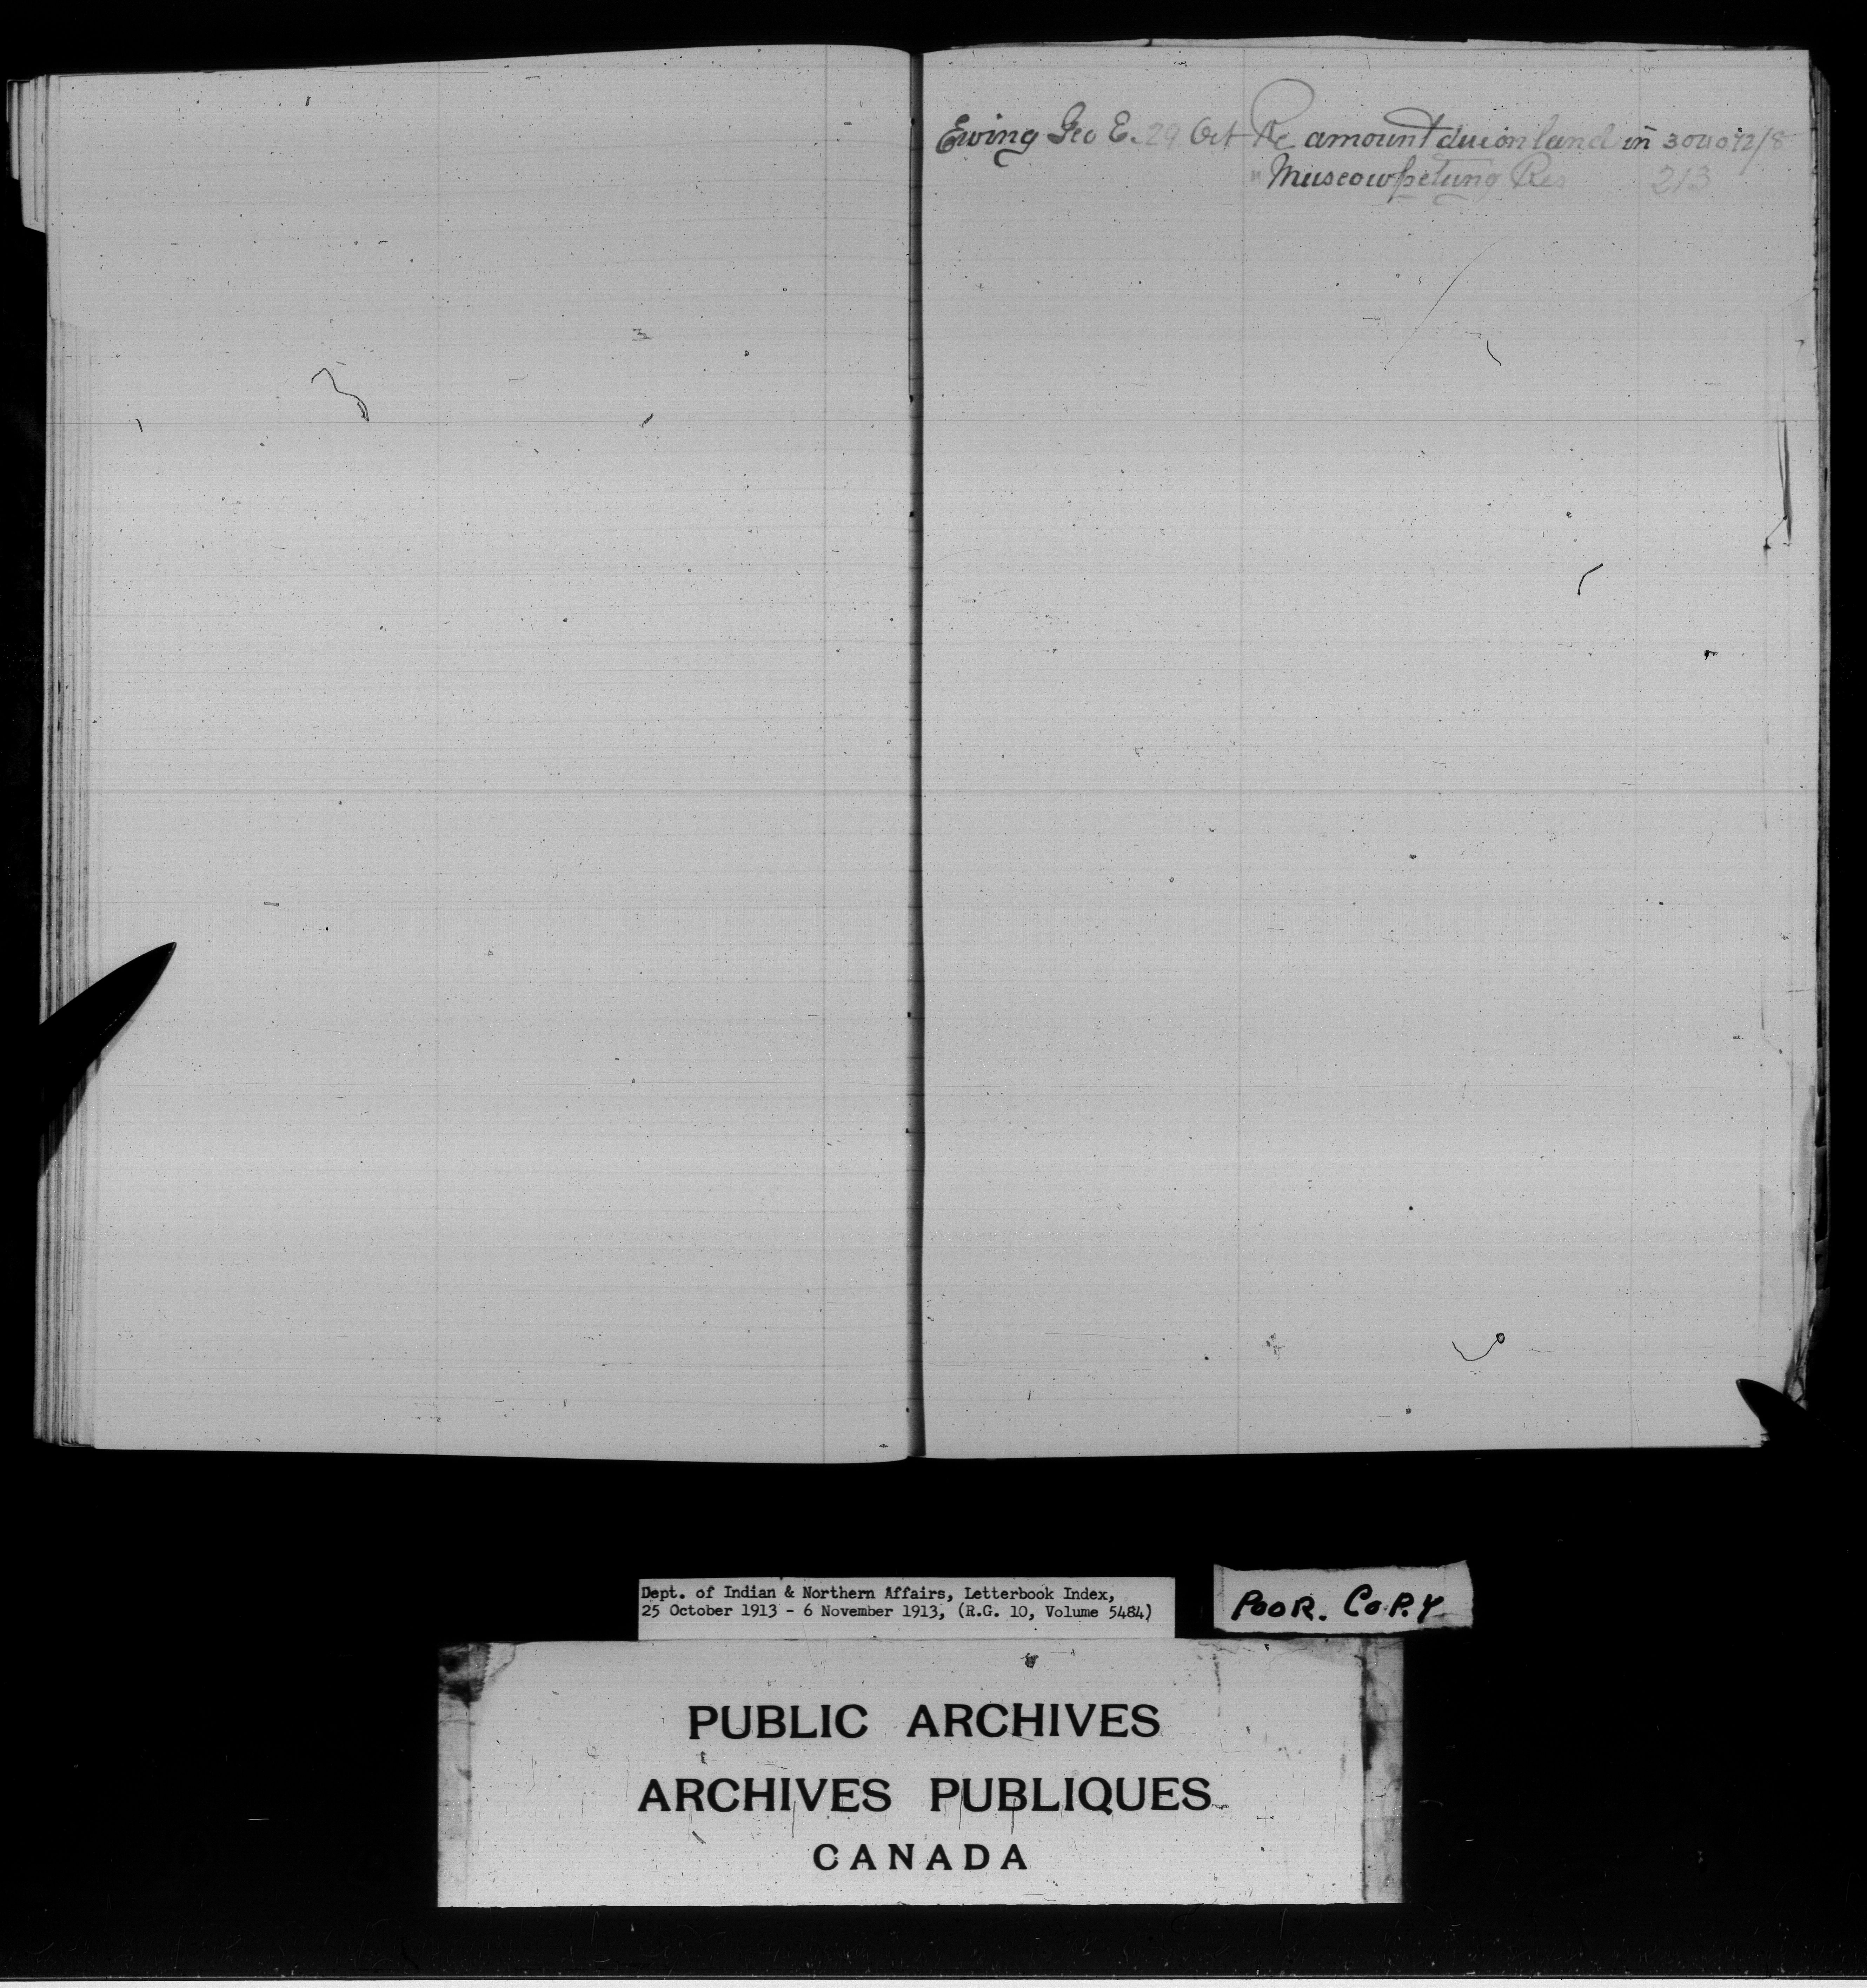 Ewing Geo E. 29 Oct Re amount due on land in
" Muscowpetung Res 213
Dept. of Indian & Northern Affairs, Letterbook Index,
25 October 1913 - 6 November 1913, (R.G. 10, Volume 5484)
POOR. COPY
PUBLIC ARCHIVES
ARCHIVES PUBLIQUES
CANADA